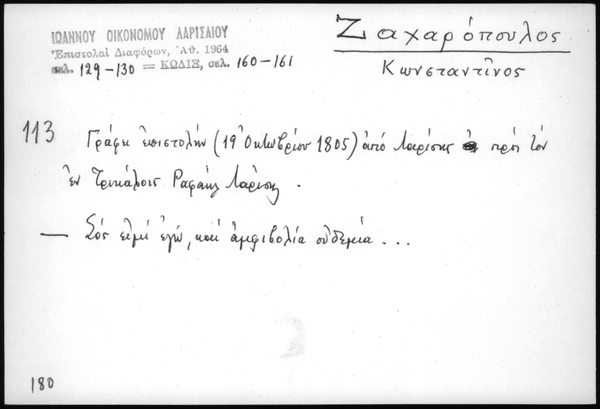 ΙΩΑΝΝΟΥ ΟΙΚΟΝΟΜΟΥ ΛΑΡΙΣΑΙΟΥ
Ἐπιστολαὶ Διαφόρων, Ἀθ. 1964
σελ. 129-130 = ΚΩΔΙΞ, σελ. 160-161
Ζαχαρόπουλος
Κωνσταντῖνος
113 Γράφει ἐπιστολὴν (19 Ὀκτωβρίου 1805) ἀπὸ Λαρίσης πρὸς τὸν
ἐν Τρικάλοις Ραφαὴλ Λαρίσης.
— Σός εἰμι ἐγώ, καὶ ἀμφιβολία οὐδεμία...
180